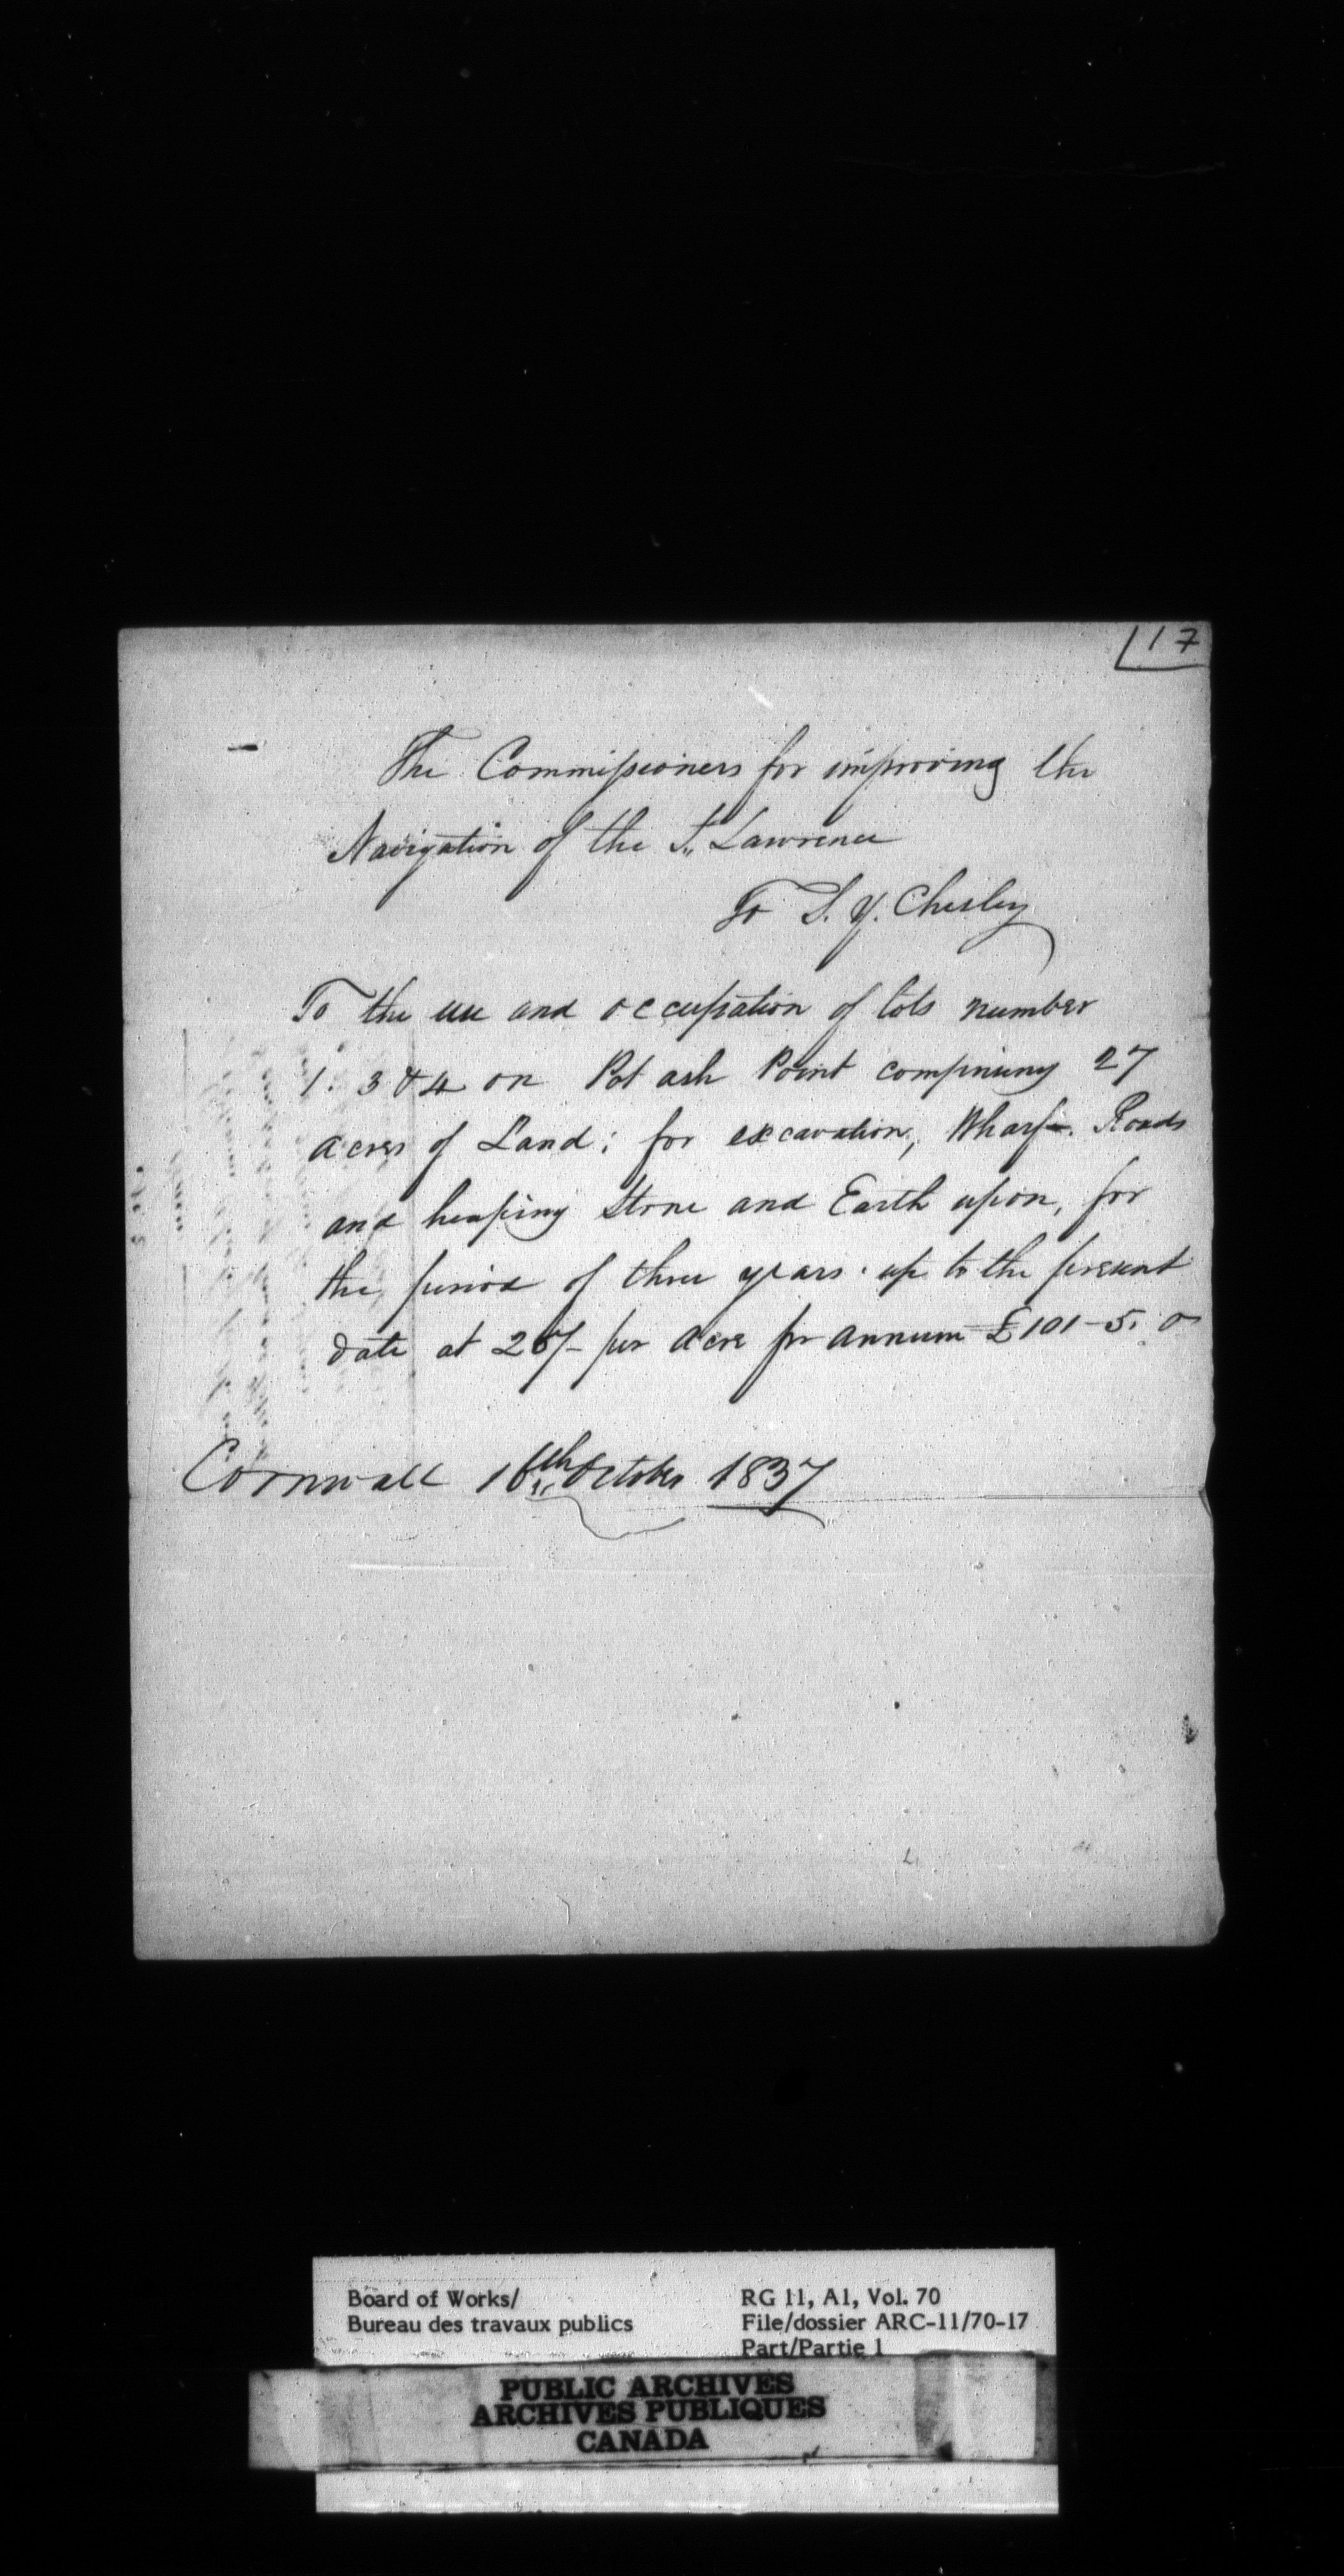 17
The Commissioners for improving the
Navigation of the St. Lawrence
To S. Y. Chesley
To the use and occupation of lots number
1. 3 & 4 on Pot ash Point comprising 27
acres of Land; for excavation, Wharf. Roads
and heaping Stone and Earth upon, for
the period of three years. up to the present
date at 25/- per acre pr annum £101-5. 0
Cornwall 16th October 1837
Board of Works/
Bureau des travaux publics
RG 11, A1, Vol. 70
File/dossier ARC-11/70-17
Part/Partie 1
PUBLIC ARCHIVES
ARCHIVES PUBLIQUES
CANADA